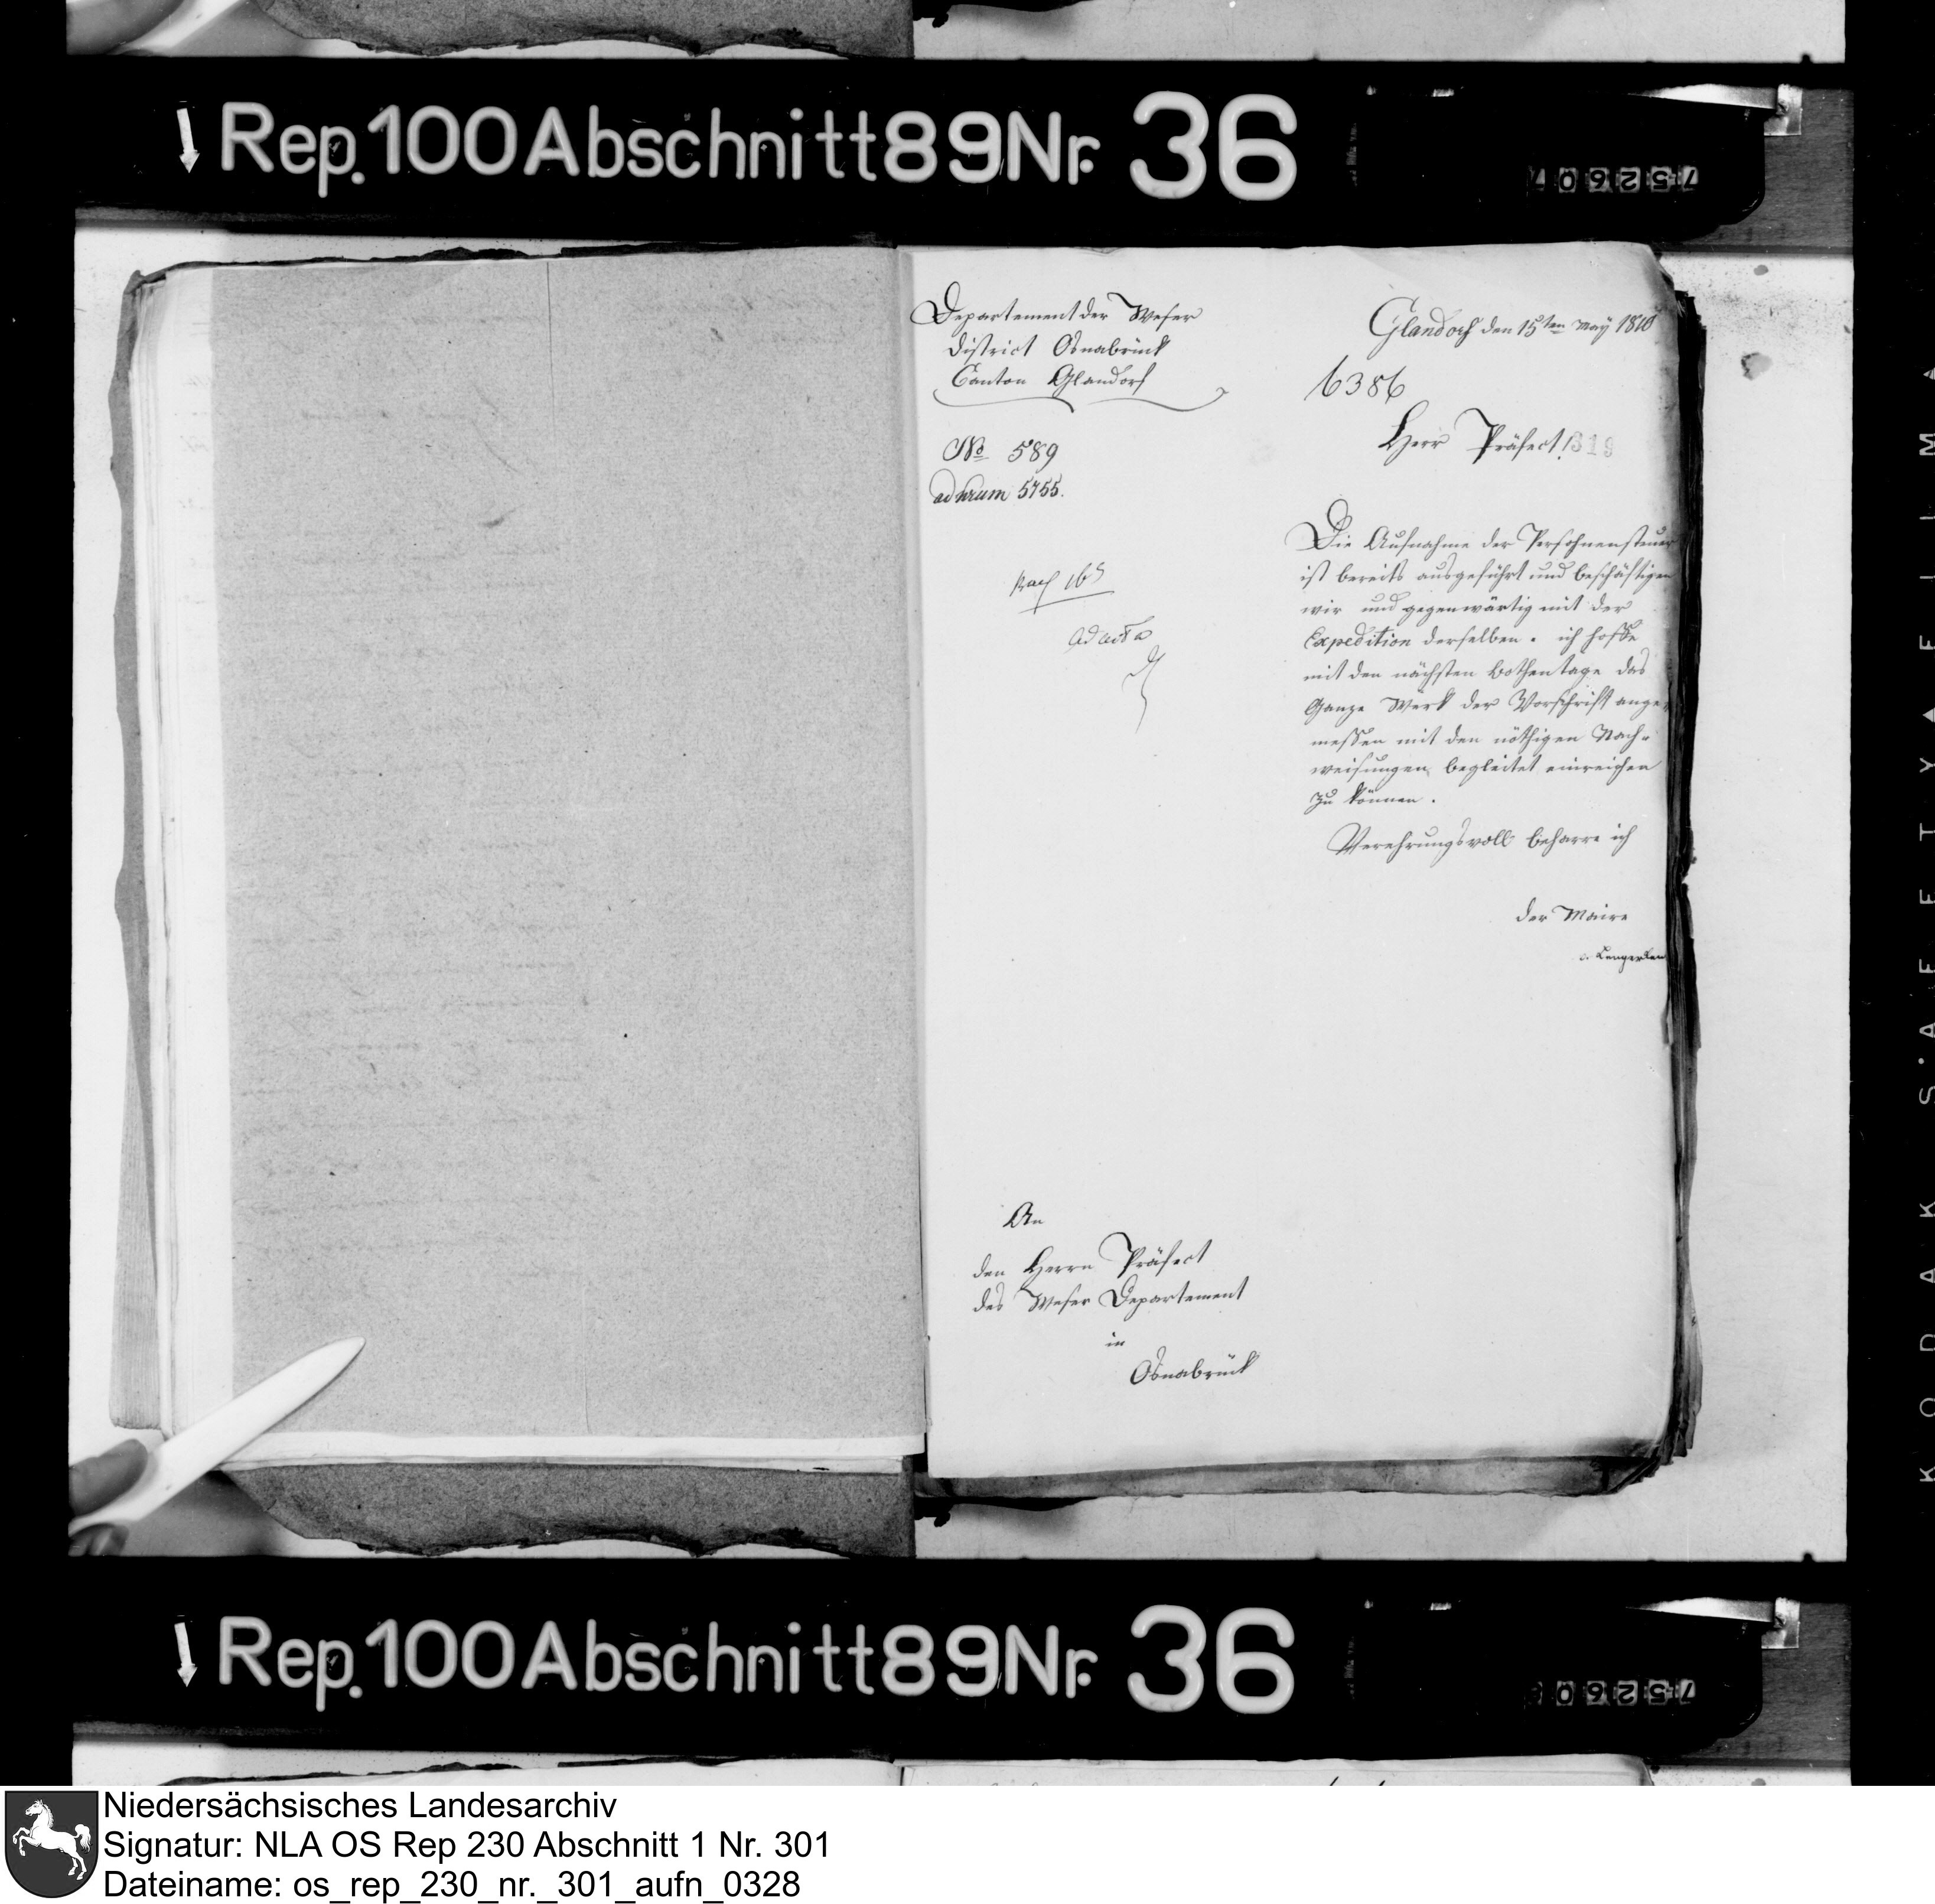 Rep. 100 Abschnitt 89 Nr. 36
752607
Departement der Weser
District Osnabrück
Canton Glandorf
No 589
ad num 5755.
ad acta
Glandorf den 15ten May 1810
6386
Herr Präfect!
319
Die Aufnahme der Persohnensteuer
ist bereits ausgeführt und beschäftigen
wir uns gegenwärtig mit der
Expedition derselben. ich hoffe
mit den nächsten Bothentage das
Ganze Werk der Vorschrift ange-
messen mit den nöthigen Nach-
weisungen begleitet einreichen
zu können.
Verehrungsvoll beharre ich
der Maire
v. Lengerken
An
den Herrn Präfect
des Weser Departement
in
Osnabrück
KODAK SAFETY FILM
Rep. 100 Abschnitt 89 Nr. 36
75260
Niedersächsisches Landesarchiv
Signatur: NLA OS Rep 230 Abschnitt 1 Nr. 301
Dateiname: os_rep_230_nr._301_aufn_0328